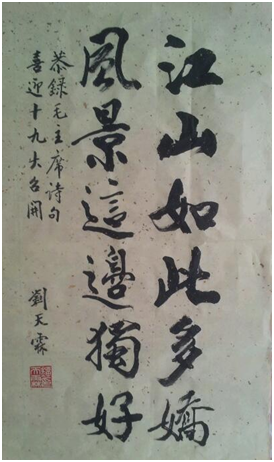 江山如此多嬌
風景這邊獨好
恭録毛主席诗句
喜迎十九大召開
劉天霖